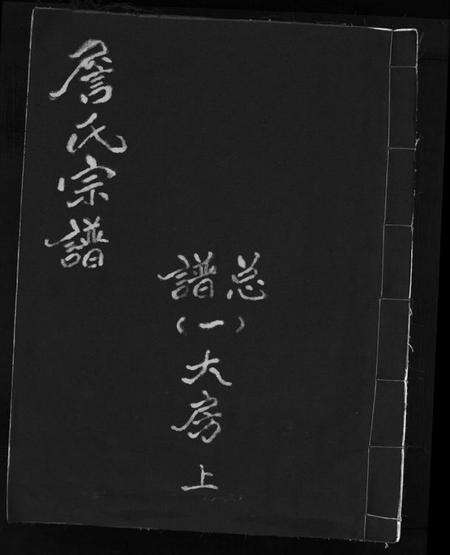 詹氏宗譜
总譜
(一)
大房
上